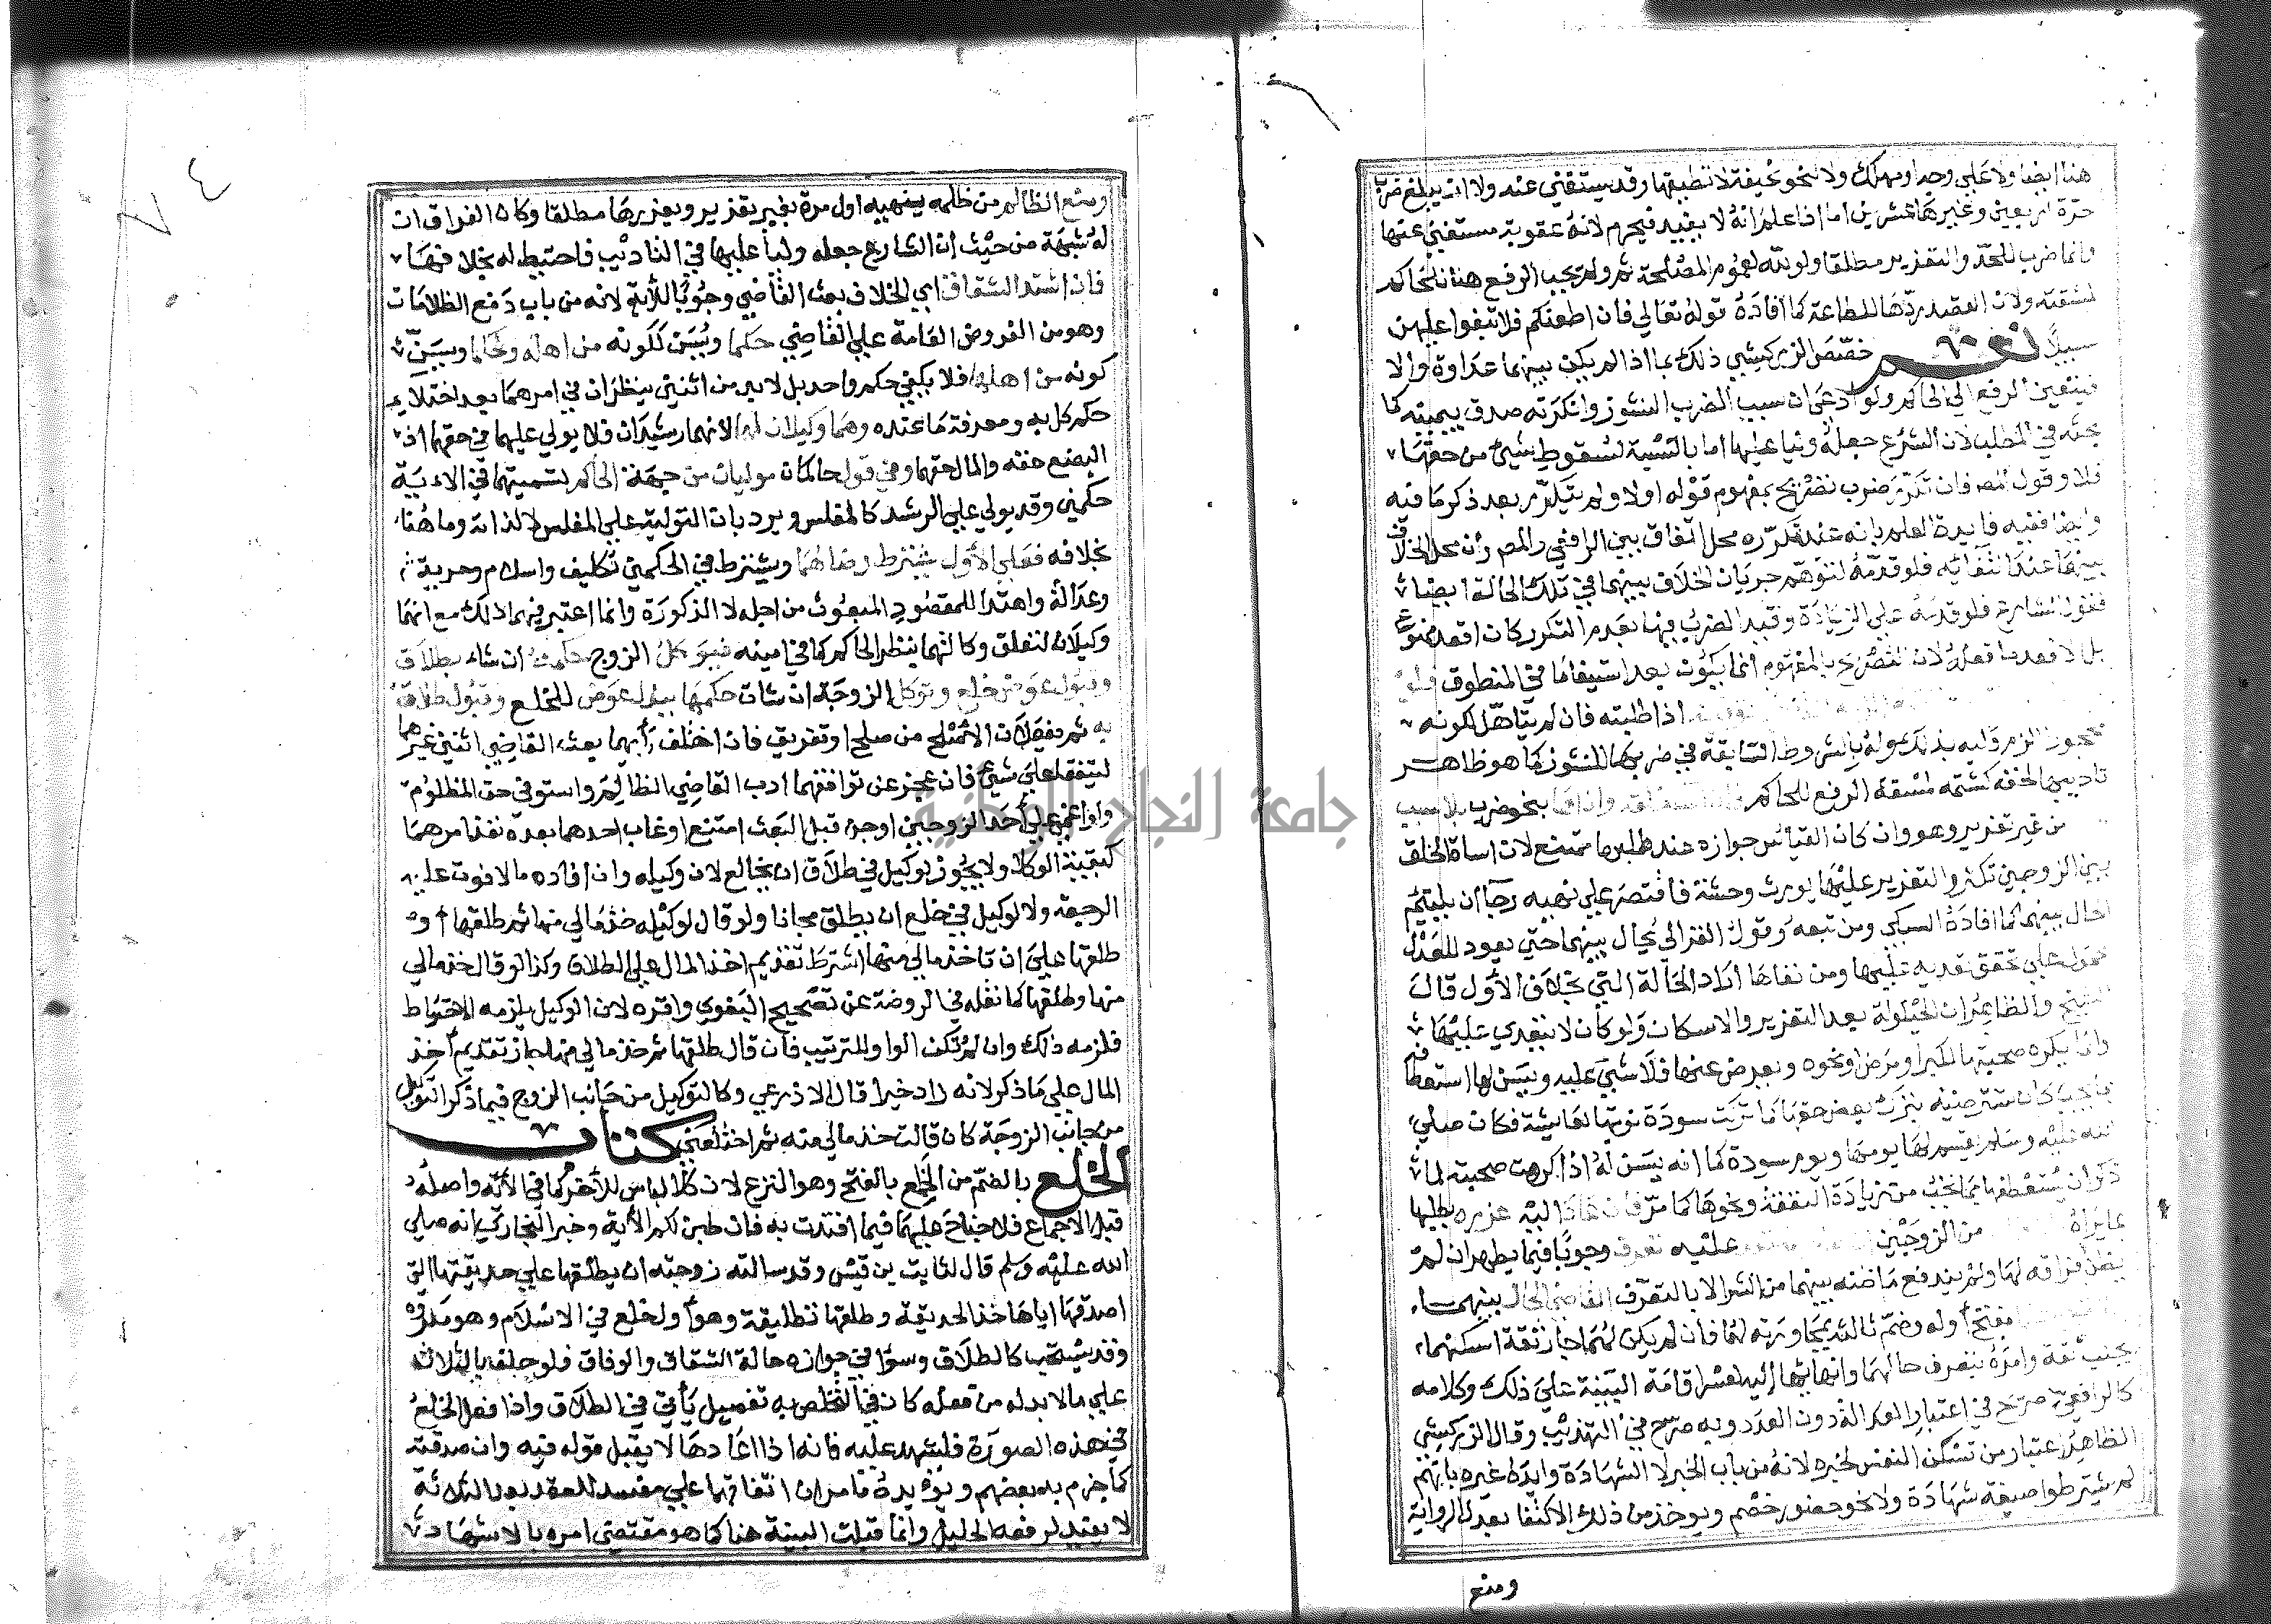 هنا ايضا ولا على وجه او مهلك ولا نحو نحيفة لا تطيقها وقد يستغني عنه ولا ان يبلغ ضرب
حرة اربعين وغيرها عشرين اما اذا علم انه لا يفيد فيحرم لانه عقوبة مستغني عنها
وانما ضرب للحد والتعزير مطلقا ولو لله لعموم المصلحة ثم ولم يجب الرفع هنا للحاكم
لمشقته ولان القصد ردها للطاعة كما افاده قوله تعالى فان اطعنكم فلا تبغوا عليهن
سبيلا نعم خصص الزركشي ذلك بما اذا لم يكن بينهما عداوة والا
فيتعين الرفع الى الحاكم ولو ادعى ان سبب الضرب النشوز وانكرته صدق بيمينه كما
بحثه في المطلب لان الشرع جعله وليا عليها اما بالنسبة لسقوط شيئ من حقها
فلا وقول المص فان تكرر ضرب تصريح بمفهوم قوله اولا ولم يتكرر بعد ذكر ما فيه
وايضا ففيه فايدة العلم بانه عند تكرره محل اتفاق بين الرافعي والمص وان محل الخلاف
بينهما عند انتفائه فلو قدمه لتوهم جريان الخلاف بينهما في تلك الحالة ايضا
فقول الشارح فلو قدمه على الزيادة وقيد الضرب فيها بعدم التكرر كان اقعد ممنوع
بل لا قعد ما فعله لان التصريح بالمفهوم انما يكون بعد استيفاء ما في المنطوق
اذا طلبته فان لم يتاهل لكونه
محجورا الزم وليه بذلك وله بالشروط السابقة في ضربها للنشوز كما هو ظاهر
تاديبها لحقه كشتمه لمشقة الرفع للحاكم بنحو ضرب بلا سبب
من غير تعزير وهو وان كان القياس جوازه عند طلبها ممتنع لان اساة الخلق
بين الزوجين تكثر والتعزير عليها يورث وحشة فاقتصر على نهيه رجا ان يلتئم
الحال بينهما كما افاده السبكي ومن تبعه وقول الغزالي يحال بينهما حتى يعود للعدل
محمول على تحقق تعديه عليها ومن نفاها اراد الحالة التي بخلاف الأول قال
الشيخ والظاهر ان الحيلولة بعد التعزير والاسكان ولو كان لا يتعدي عليها
وانما يكره صحبتها لكبر او مرض او نحوه ويعرض عنها فلا شي عليه ويسن لها استعطافه
بما يحب كان تسترضيه بترك بعض حقها كما تركت سودة نوبتها لعايشة فكان صلى
الله عليه وسلم يقسم لها يومها ويوم سودة كما انه يسن له اذا كرهت صحبته لما
ذكر ان يستعطفها بما تحب من زيادة النفقة ونحوها كما مر فان عاد اليه عزره بطلبها
بما يراه من الزوجين عليه تعرف وجوبا فيما يظهر ان لم
يظن فراقه لها ولم يندفع ما ظنه بينهما من الشر الا بالتعرف القاضي الحال بينهما
بفتح أوله وضم ثالثه يجاورته لهما فان لم يكن لهما جار ثقة اسكنهما
بجنب ثقة وامره بتعرف حالهما وانهائها إليه لعسر اقامة البينة على ذلك وكلامه
كالرافعي صريح في اعتبار العدالة دون العدد وبه صرح في التهذيب وقال الزركشي
الظاهر اعتبار من تسكن النفس لخبره لانه من باب الخبر لا الشهادة وايده غيره بانهم
لم يشترطوا صيغة شهادة ولا نحو حضور خصم ويوخذ من ذلك الاكتفا بعدل الرواية
ومنع
ومنع الظالم من ظلمه بنهيه اول مرة بغير تعزير وبعزيرها مطلقا وكان الفراق ان
له شبهة من حيث ان الشارع جعله وليا عليها في التاديب فاحتيط له بخلافها
فان اشتد الشقاق اي الخلاف بعث القاضي وجوبا للآية لانه من باب دفع الظلامات
وهو من الفروض العامة على القاضي حكما ويسن لكونه من اهله وحكما ويسن
كونه من اهلها فلا يكفي حكم واحد بل لابد من اثنين ينظران في امرهما بعد اختلاء
حكم كل به ومعرفة ما عنده وهما وكيلان لهما لانهما رشيدان فلا يولي عليهما في حقهما اذ
البضع حقه والمال حقها وفي قول حاكمان موليان من جهة الحاكم لتسميتهما في الاية
حكمين وقد يولي على الرشيد كالمفلس ويرد بان التولية على المفلس لا لذاته وما هنا
بخلافه فعلى الأول يشترط رضاهما ويشترط في الحكمين تكليف واسلام وحرية
وعدالة واهتدا للمقصود المبعوث من اجله لا الذكورة وانما اعتبر فيهما ذلك مع انهما
وكيلان لتعلق وكالتهما بنظر الحاكم كما في امينه فيوكل الزوج حكمه ان شاء بطلاق
وقبول عوض خلع وتوكل الزوجة ان شات حكمها ببذل عوض للخلع وقبول طلاق
به ثم يفعلان الاصلح من صلح او تفريق فان اختلف رأيهما بعث القاضي اثنين غيرهما
ليتفقا على شيئ فان عجز عن توافقهما ادب القاضي الظالم واستوفى حق المظلوم
ولو اغمي على أحد الزوجين او جن قبل البعث امتنع او غاب احدهما بعده نفذ امرهما
كبقية الوكلا ولا يجوز لوكيل في طلاق ان يخالع لان وكيله وان افاده مالا فوت عليه
الرجعة ولا لوكيل في خلع ان يطلق مجانا ولو قال لوكيله خذ مالي منها ثم طلقها أو
طلقها على ان تاخذ مالي منها اشترط تقديم اخذ المال على الطلاق وكذا لو قال خذ مالي
منها وطلقها كما نقله في الروضة عن تصحيح البغوي واقره لان الوكيل يلزمه الاحتياط
فلزمه ذلك وان لم تكن الواو للترتيب فان قال طلقها ثم خذ مالي منها جاز تقديم أخذ
المال على ما ذكر لانه زاد خيرا قال الاذرعي وكالتوكيل من جانب الزوج فيما ذكر التوكيل
من جانب الزوجة كان قالت خذ مالي منه ثم اختلعني كتاب
الخلع بالضم من الخلع بالفتح وهو النزع لان كلا لباس للأخر كما في الآية واصله
قبل الاجماع فلا جناح عليهما فيما افتدت به فان طبن لكم الآية وخبر البخاري انه صلى
الله عليه وسلم قال لثابت بن قيس وقد سالته زوجته ان يطلقها على حديقتها التي
اصدقها اياها خذ الحديقة وطلقها تطليقة وهو أول خلع في الاسلام وهو مكروه
وقد يستحب كالطلاق وسوا في جوازه حالة الشقاق والوفاق فلو حلف بالثلاث
على مالا بد له من فعله كان في التخلص به تفصيل يأتي في الطلاق واذا فعل الخلع
في هذه الصورة فليشهد عليه فانه اذا اعادها لا يقبل قوله فيه وان صدقته
كما جزم به بعضهم ويؤيده ما مر ان اتفاقهما على مفسد للعقد بعد الثلاثة
لا يفيد لرفعه التحليل وانما قبلت البينة هنا كما هو مقتضى امره بالاشهاد
جامعة النجاح الوطنية